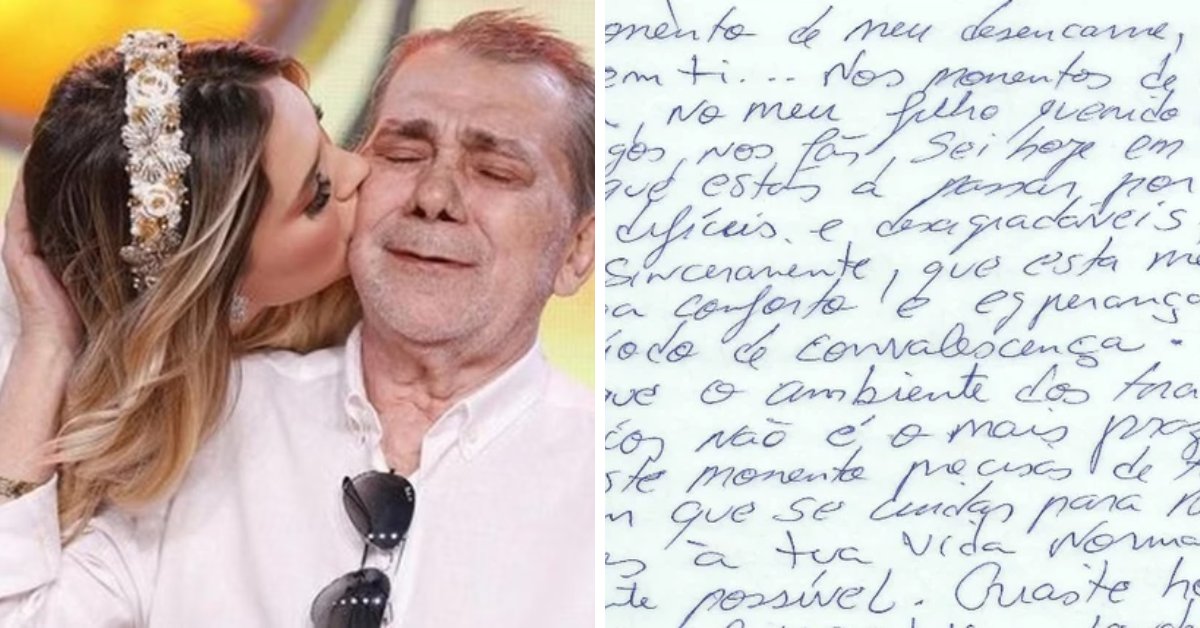 omento de meu desencarne,
em ti... Nos momentos de
, no meu filho querido
gos, nos fãs, Sei hoje em
que estás a passar por
difíceis e desagradáveis
sinceramente, que esta me
conforto e esperanç
íodo de convalescença.
que o ambiente dos
cos não é o mais praz
ste momento precisas de
que se cuidas para
à tua vida norma
te possível.